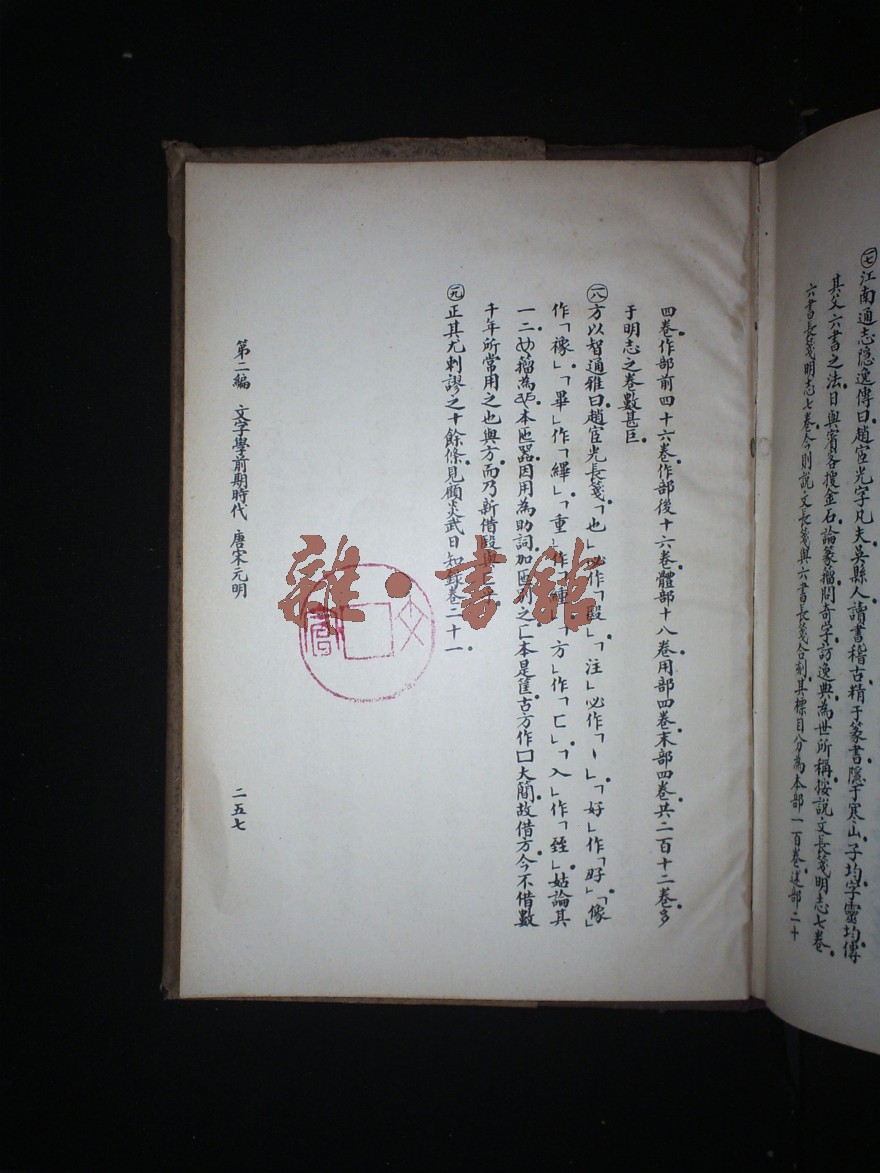 ㊀七江南通志隱逸傳曰趙宧光字凡夫吳縣人讀書稽古精于篆書隱于寒山子均字靈均傳
其父六書之法日與賓客搜金石論篆籀問奇字訪逸典為世所稱按說文長箋明志七卷
六書長箋明志七卷今則說文長箋與六書長箋合刻其標目分為本部一百卷述部二十
四卷作部前四十六卷作部後十六卷體部十八卷用部四卷末部四卷共二百十二卷多
于明志之卷數甚巨
一八方以智通雅曰趙宧光長箋「也」必作「殹」「注」必作「丶」「好」作「㝀」「像」
作「襐」「畢」作「繹」「重」作「」「方」作「匚」「入」作「臸」姑論其
一二籀為本匜器因用為助詞加匚別之匚本是筐古方作口大簡故借方今不借數
千年所常用之也與方而乃新借殹與
一九正其尤剌謬之十餘條見顧炎武日知錄卷二十一
第二編 文字學前期時代 唐宋元明
二五七
雜·書館
文